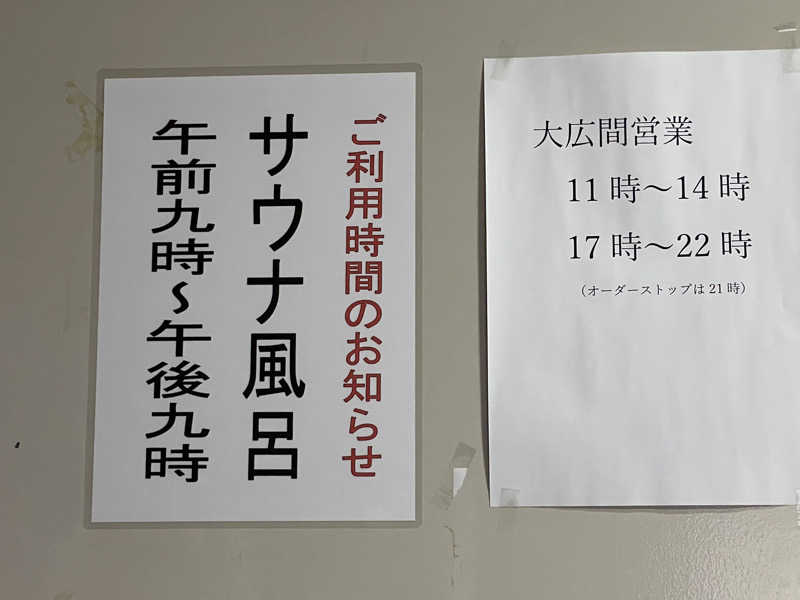 ご利用時間のお知らせ
サウナ風呂
午前九時～午後九時
大広間営業
11時～14時
17時～22時
（オーダーストップは21時）